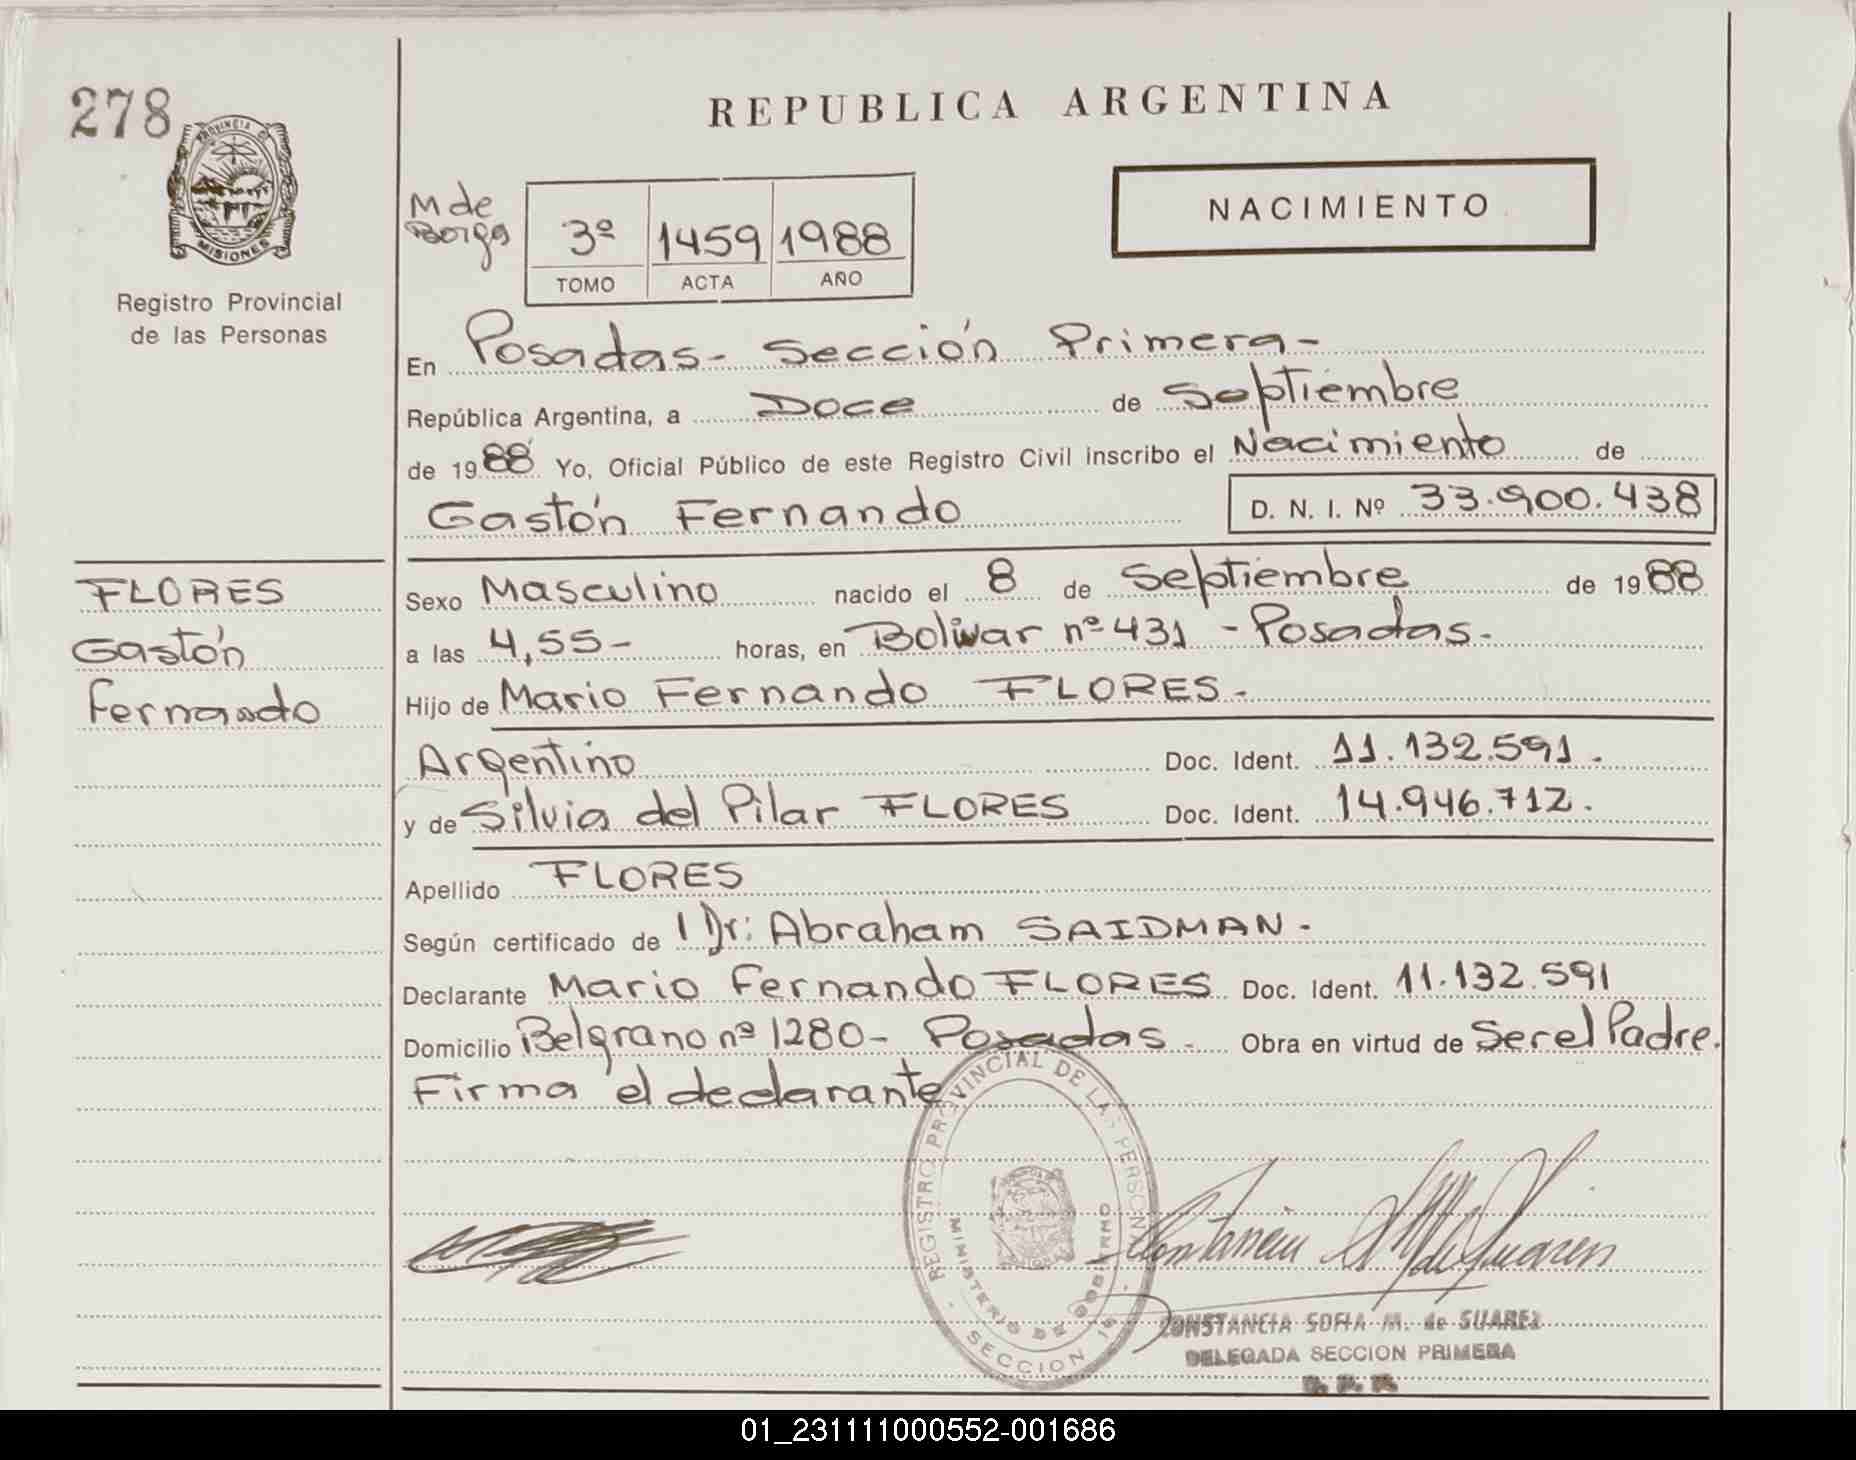 278
PROVINCIA DE
MISIONES
Registro Provincial
de las Personas
REPUBLICA ARGENTINA
NACIMIENTO
M de
Borga
3º 1459 1988
TOMO ACTA AÑO
En Posadas- Sección Primera-
República Argentina, a Doce de Septiembre
de 1988 Yo, Oficial Público de este Registro Civil inscribo el Nacimiento de
Gastón Fernando D. N. I. Nº 33.900.438
FLORES
Gastón
Fernando
Sexo Masculino nacido el 8 de Septiembre de 1988
a las 4,55- horas, en Bolivar nº 431 - Posadas.
Hijo de Mario Fernando FLORES.
Argentino Doc. Ident. 11.132.591.
y de Silvia del Pilar FLORES Doc. Ident. 14.946.712.
Apellido FLORES
Según certificado de Dr: Abraham SAIDMAN.
Declarante Mario Fernando FLORES Doc. Ident. 11.132.591
Domicilio Belgrano nº 1280- Posadas. Obra en virtud de Ser el Padre.
Firma el declarante
REGISTRO PROVINCIAL DE LAS PERSONAS
MINISTERIO DE GOBIERNO
SECCION 1ª
CONSTANCIA SOFIA M. de SUAREZ
DELEGADA SECCION PRIMERA
01_231111000552-001686